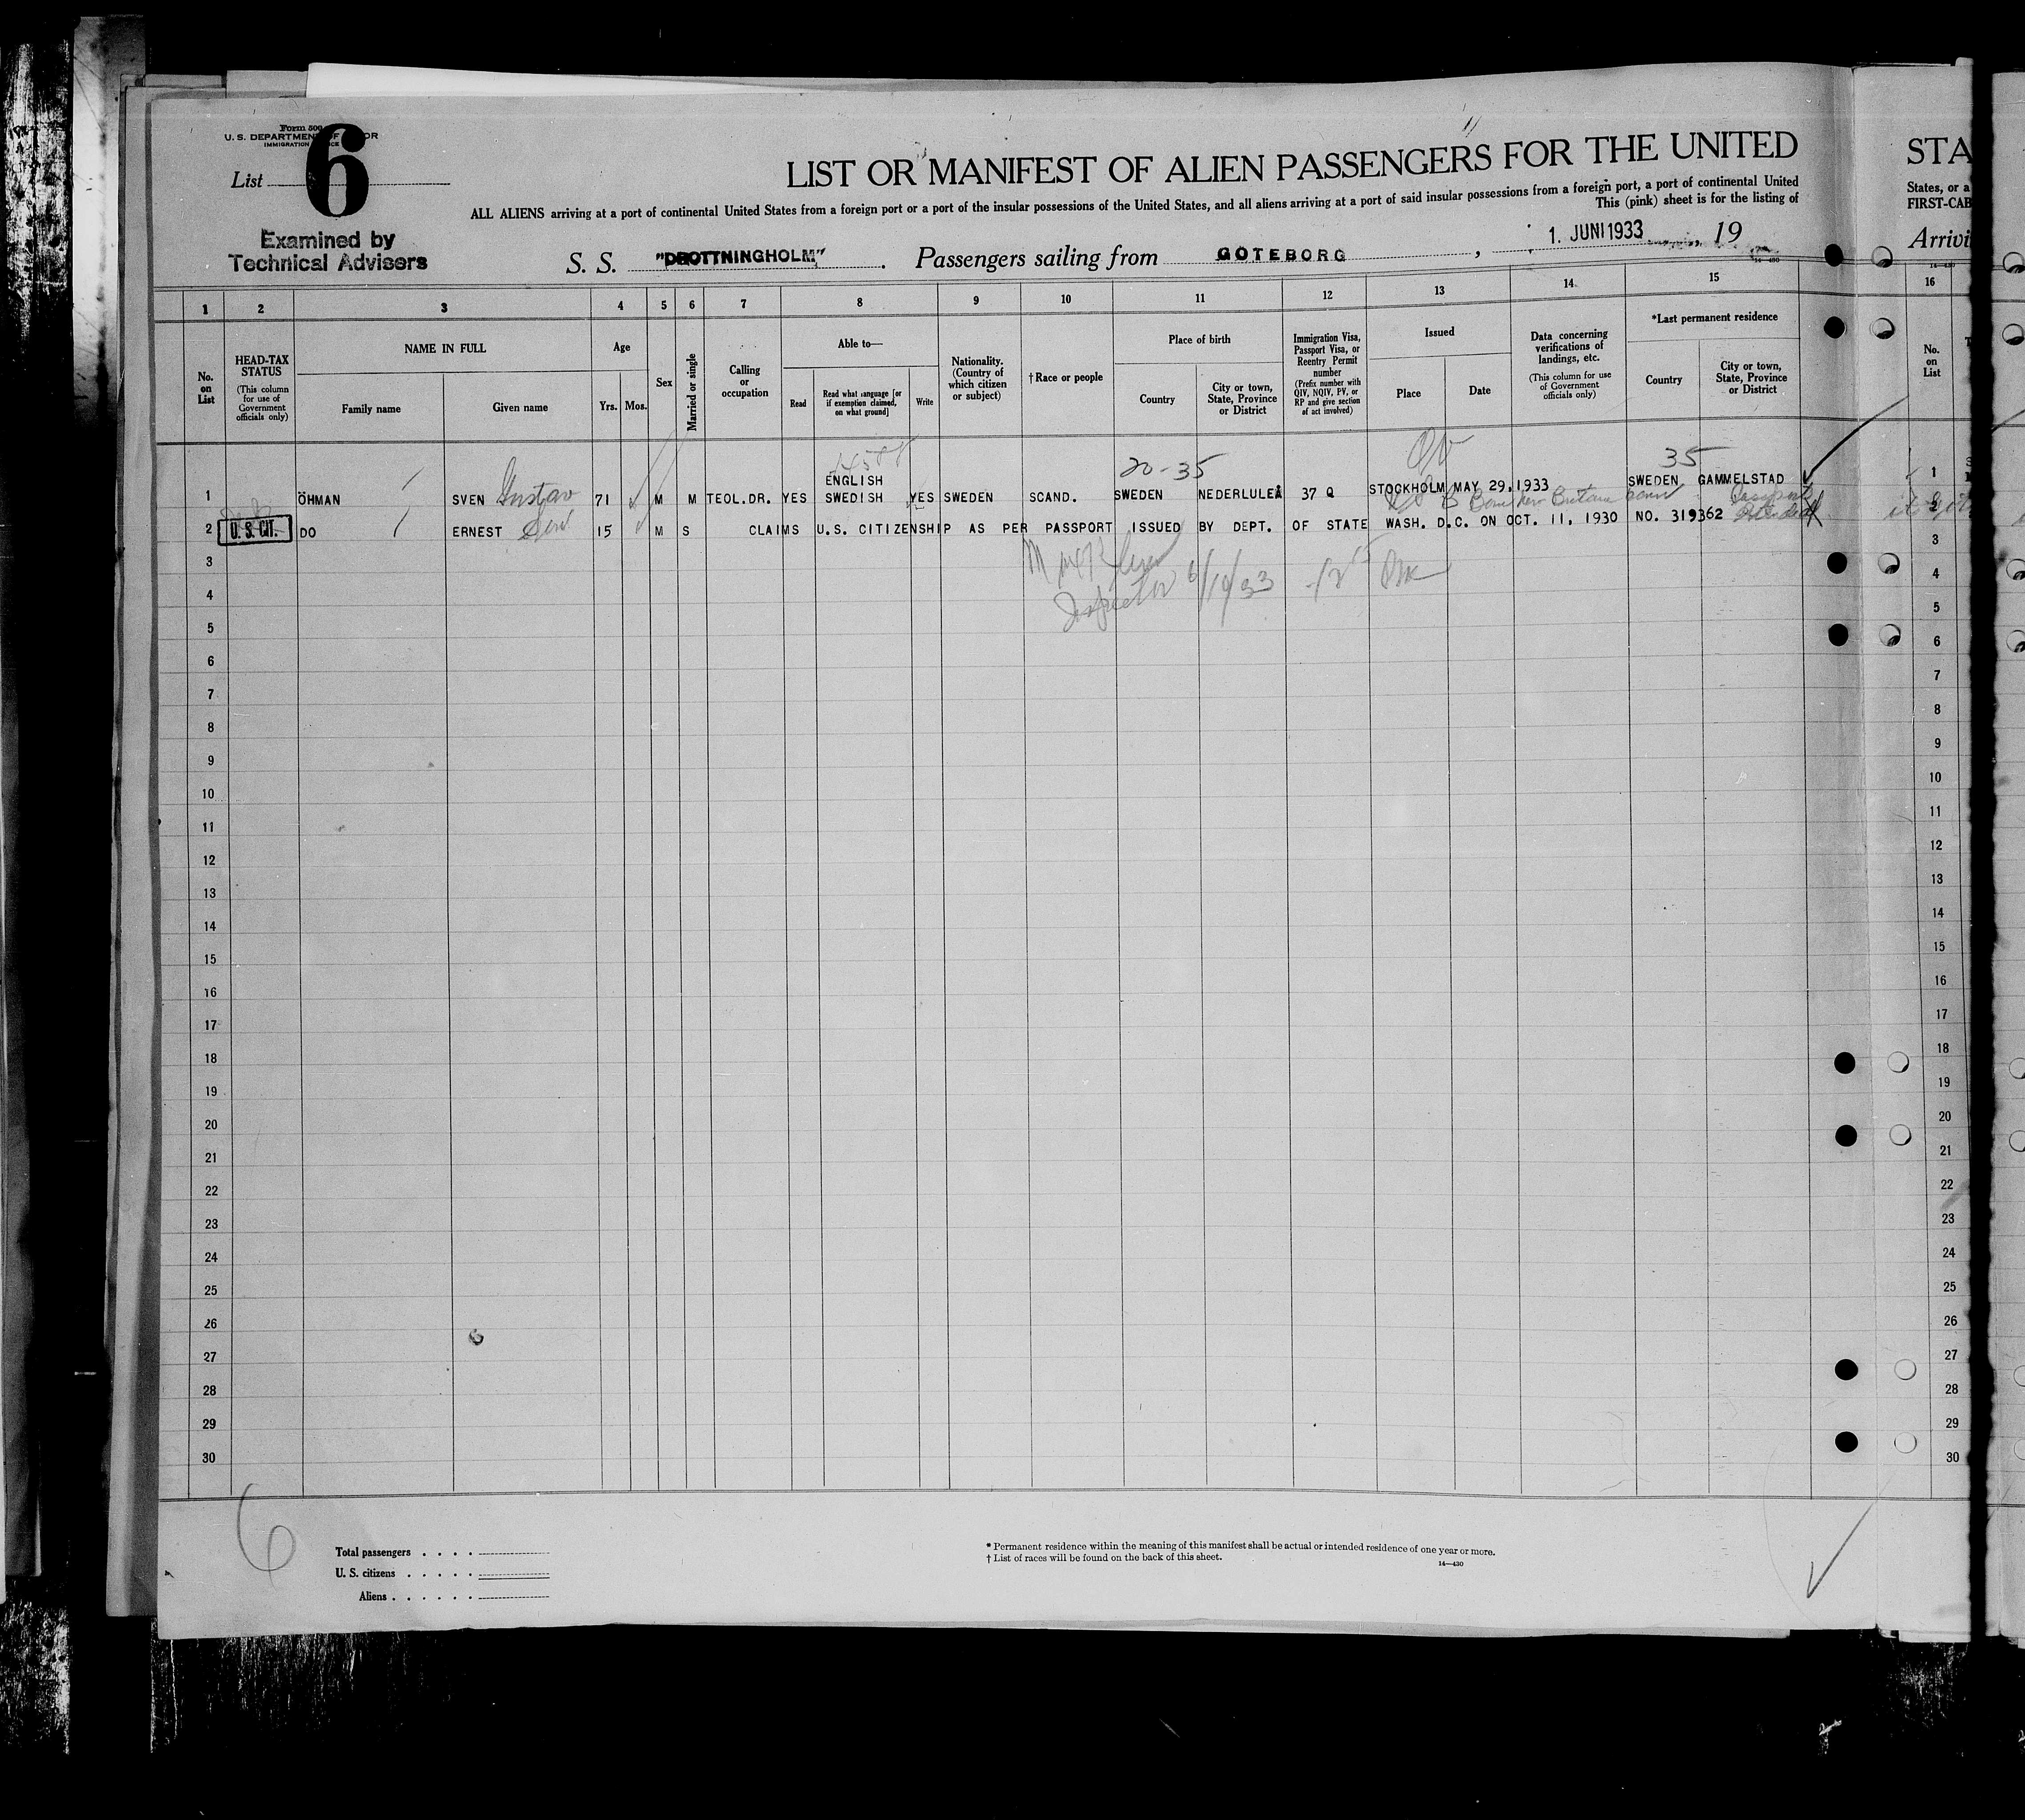 Form 500
U. S. DEPARTMENT OF
IMMIGRATION
List 6
LIST OR MANIFEST OF ALIEN PASSENGERS FOR THE UNITED
STA
ALL ALIENS arriving at a port of continental United States from a foreign port or a port of the insular possessions of the United States, and all aliens arriving at a port of said insular possessions from a foreign port, a port of continental United
States, or a
This (pink) sheet is for the listing of
FIRST-CAB
Examined by
Technical Advisers
S. S. "DROTTNINGHOLM". Passengers sailing from GÖTEBORG, 1. JUNI 1933, 19
Arrivi
14—430
1 2 3 4 5 6 7 8 9 10 11 12 13 14 15 16
No. on List
HEAD-TAX STATUS
(This column for use of Government officials only)
NAME IN FULL
Family name
Given name
Age
Yrs. Mos.
Sex
Married or single
Calling or occupation
Able to—
Read
Read what language [or if exemption claimed, on what ground]
Write
Nationality. (Country of which citizen or subject)
†Race or people
Place of birth
Country
City or town, State, Province or District
Immigration Visa, Passport Visa, or Reentry Permit number
(Prefix number with QIV, NQIV, PV, or RP and give section of act involved)
Issued
Place
Date
Data concerning verifications of landings, etc.
(This column for use of Government officials only)
*Last permanent residence
Country
City or town, State, Province or District
No. on List
20-35
35
ENGLISH
1 ÖHMAN SVEN Gustav 71 M M TEOL.DR. YES SWEDISH YES SWEDEN SCAND. SWEDEN NEDERLULEÅ 37 Q STOCKHOLM MAY 29,1933 SWEDEN GAMMELSTAD 1
2 U.S. CIT. DO ERNEST 15 M S CLAIMS U.S. CITIZENSHIP AS PER PASSPORT ISSUED BY DEPT. OF STATE WASH. D.C. ON OCT. 11, 1930 NO. 319362 2
Inspector 6/10/33
3 3
4 4
5 5
6 6
7 7
8 8
9 9
10 10
11 11
12 12
13 13
14 14
15 15
16 16
17 17
18 18
19 19
20 20
21 21
22 22
23 23
24 24
25 25
26 26
27 27
28 28
29 29
30 30
6
Total passengers
U. S. citizens
Aliens
* Permanent residence within the meaning of this manifest shall be actual or intended residence of one year or more.
† List of races will be found on the back of this sheet.
14—430